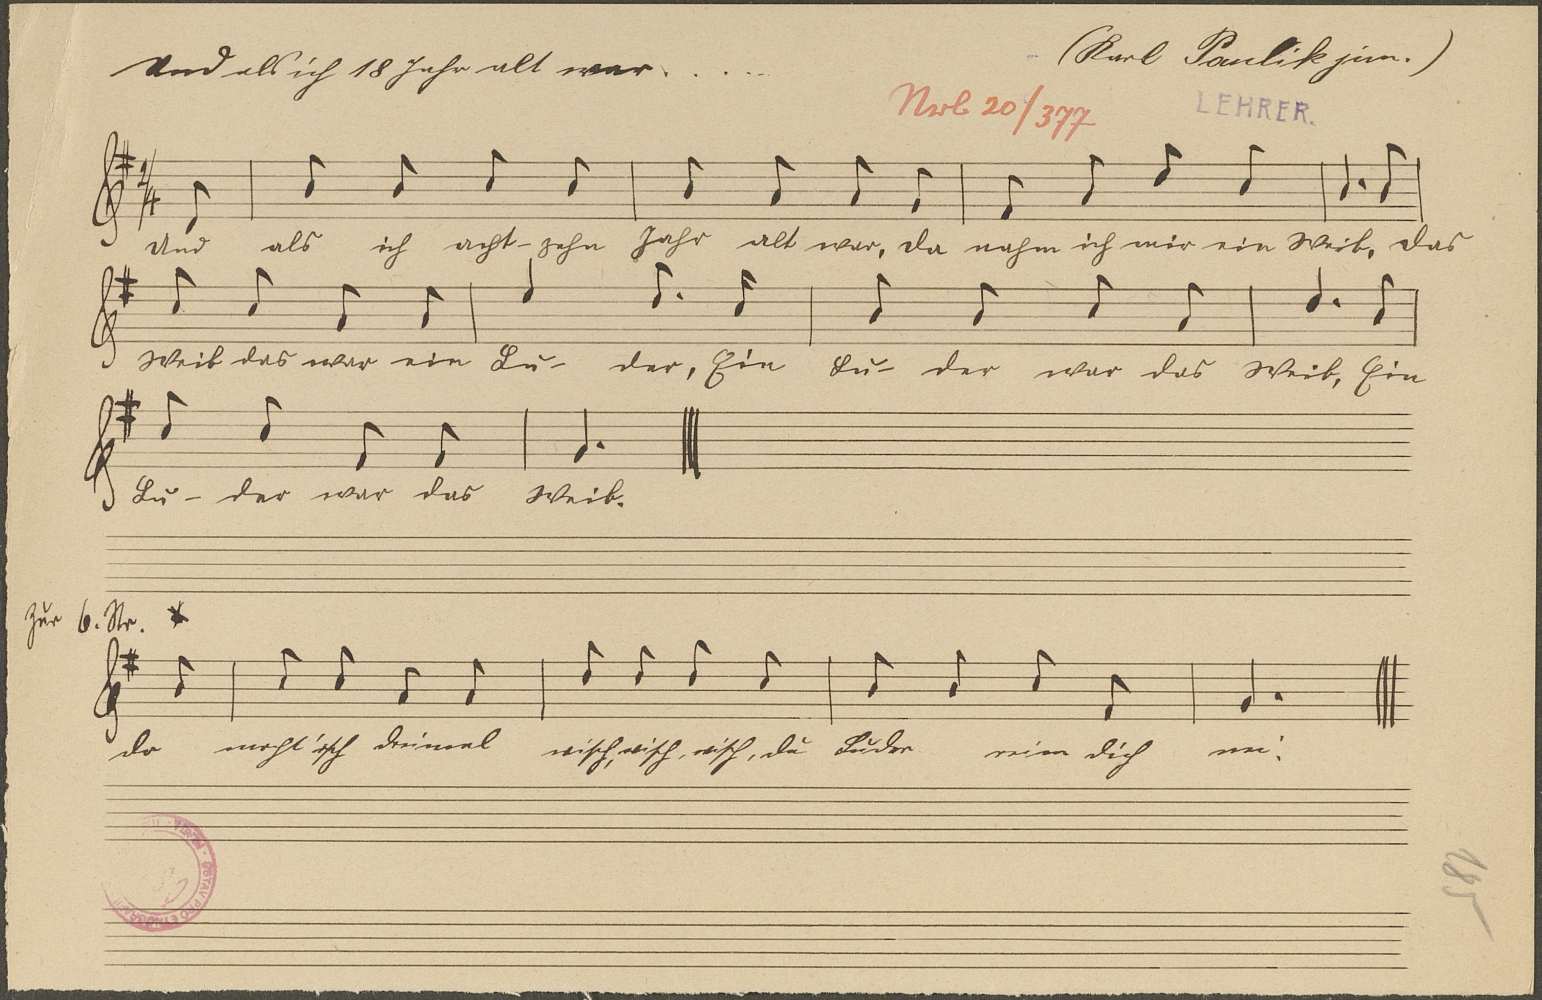 Und als ich 18 Jahr alt war. . . . .
(Karl Paulik jun.)
20/377
LEHRER.
Und als ich acht- zehn Jahr alt war, da nahm ich mir ein Weib, das
Weib das war ein Lu- der, Ein Lu- der war das Weib, Ein
Lu- der war das Weib.
Zur 6. Str.
da macht's dreimal wisch, wisch, wisch, du Luder reim dich nei.
ÚSTAV PRO
185